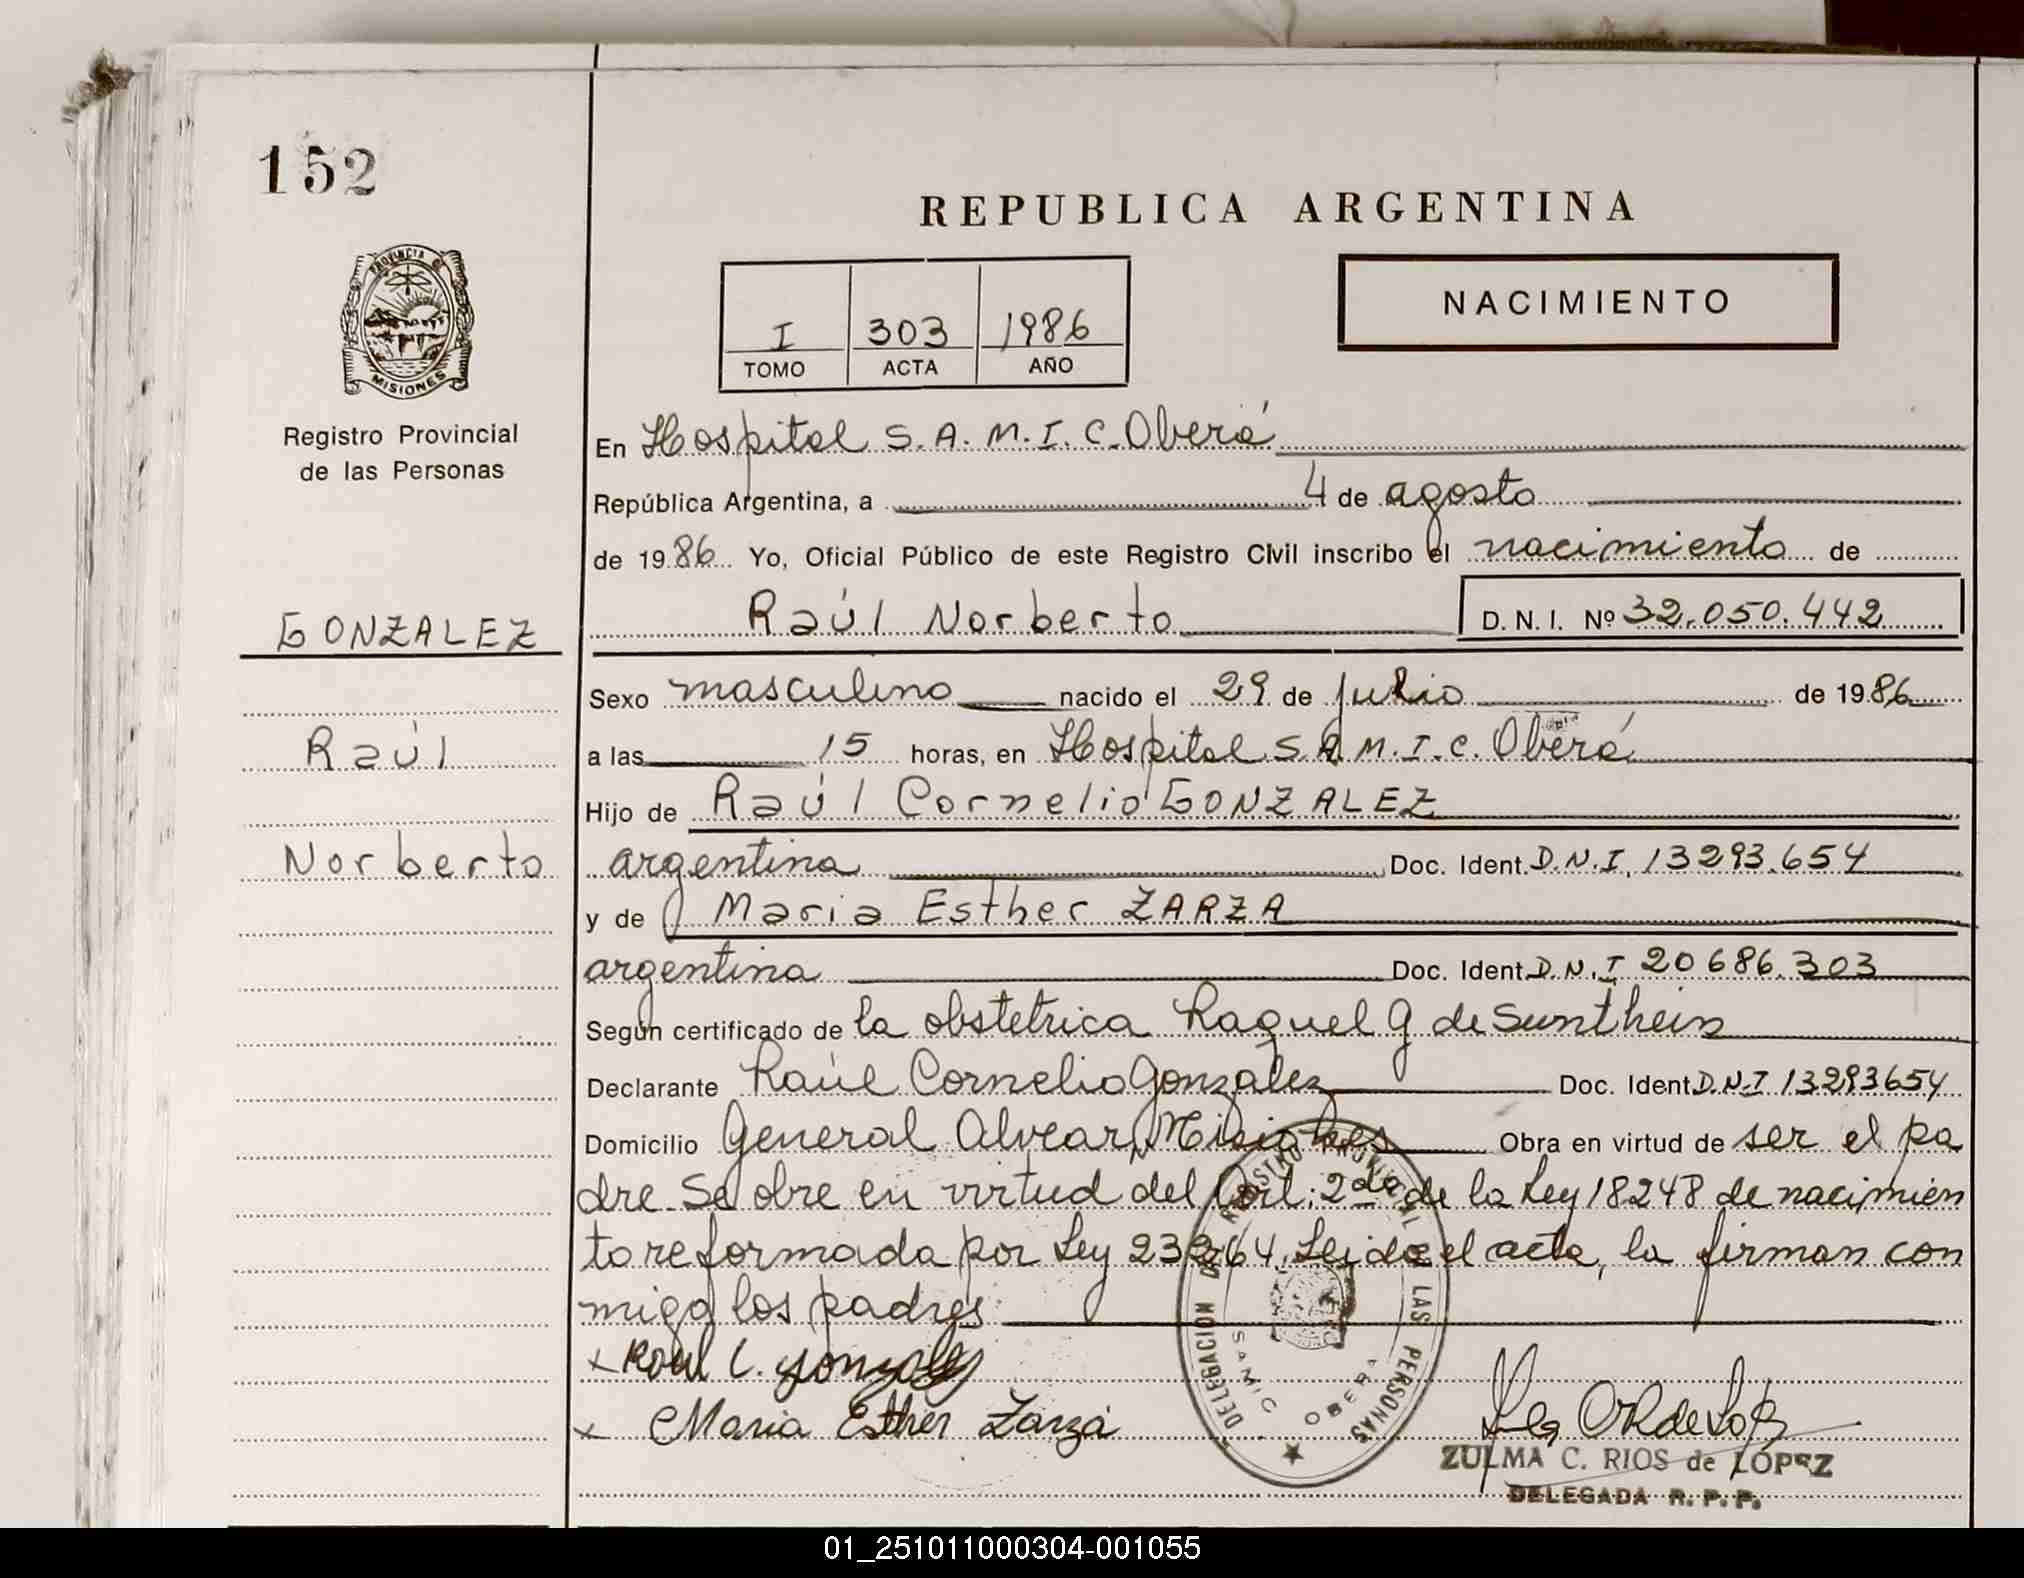 152
REPUBLICA ARGENTINA
NACIMIENTO
I 303 1986
TOMO ACTA AÑO
PROVINCIA DE
MISIONES
Registro Provincial
de las Personas
En Hospital S.A.M.I.C. Oberá
República Argentina, a 4 de agosto
de 1986 Yo, Oficial Público de este Registro Civil inscribo el nacimiento de
GONZALEZ
Raúl Norberto D.N.I. Nº 32.050.442
Sexo masculino nacido el 29 de julio de 1986
Raúl
a las 15 horas, en Hospital S.A.M.I.C. Oberá
Hijo de Raúl Cornelio GONZALEZ
Norberto
argentina Doc. Ident. D.N.I. 13293.654
y de Maria Esther ZARZA
argentina Doc. Ident. D.N.I 20686.303
Según certificado de la obstetrica Raquel G de Sunthein
Declarante Raúl Cornelio Gonzalez Doc. Ident. D.N.I 13293654
Domicilio General Alvear, Misiones Obra en virtud de ser el pa
dre. Se obre en virtud del Art. 2do de la Ley 18248 de nacimien
to reformada por Ley 23264. Leida el acta, la firman con
migo los padres.
x Raul C. Gonzalez
x Maria Esther Zarza
DELEGACION REGISTRO PROVINCIAL DE LAS PERSONAS
SAMIC OBERA
ZULMA C. RIOS de LOPEZ
DELEGADA R. P. P.
01_251011000304-001055